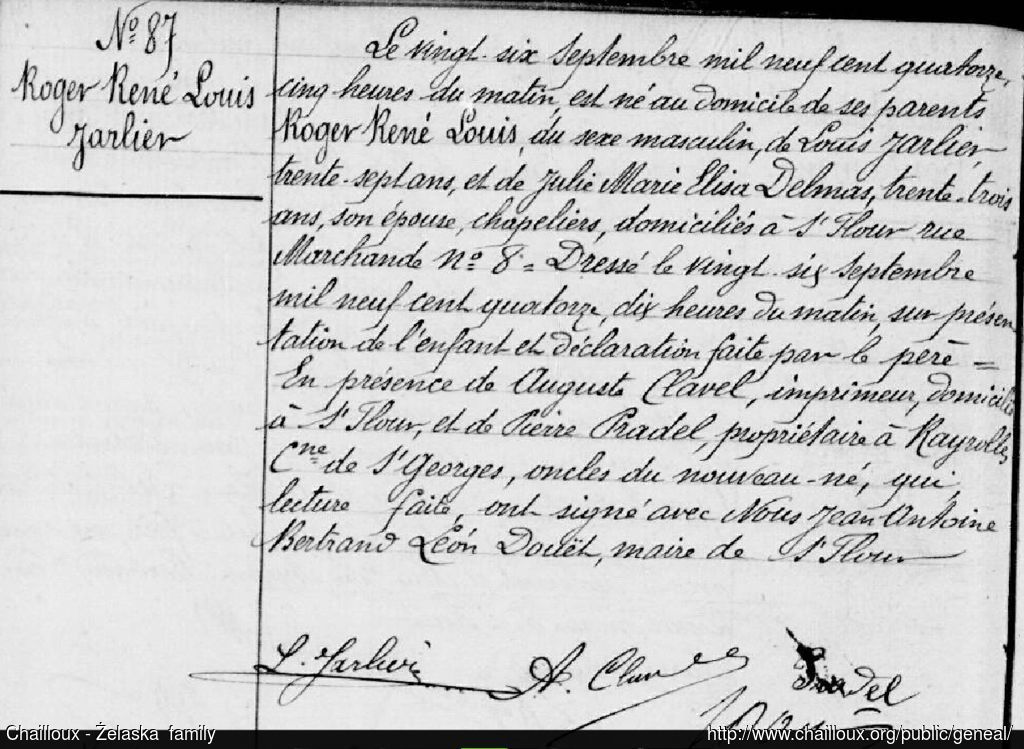 Nº 87
Roger René Louis
Jarlier
Le vingt-six Septembre mil neuf cent quatorze,
cinq heures du matin, est né au domicile de ses parents
Roger René Louis, du sexe masculin, de Louis Jarlier,
trente-sept ans, et de Julie Marie Elisa Delmas, trente-trois
ans, son épouse, chapeliers, domiciliés à St Flour rue
Marchande nº 8 = Dressé le vingt-six Septembre
mil neuf cent quatorze, dix heures du matin, sur présen
tation de l'enfant et déclaration faite par le père =
En présence de Auguste Clavel, imprimeur, domicilié
à St Flour, et de Pierre Pradel, propriétaire à Rayrolles
Cne de St Georges, oncles du nouveau-né, qui,
lecture faite, ont signé avec Nous Jean Antoine
Bertrand Léon Douët, maire de St Flour
L. Jarlier
A. Clavel
Pradel
Chailloux - Żelaska family
http://www.chailloux.org/public/geneal/